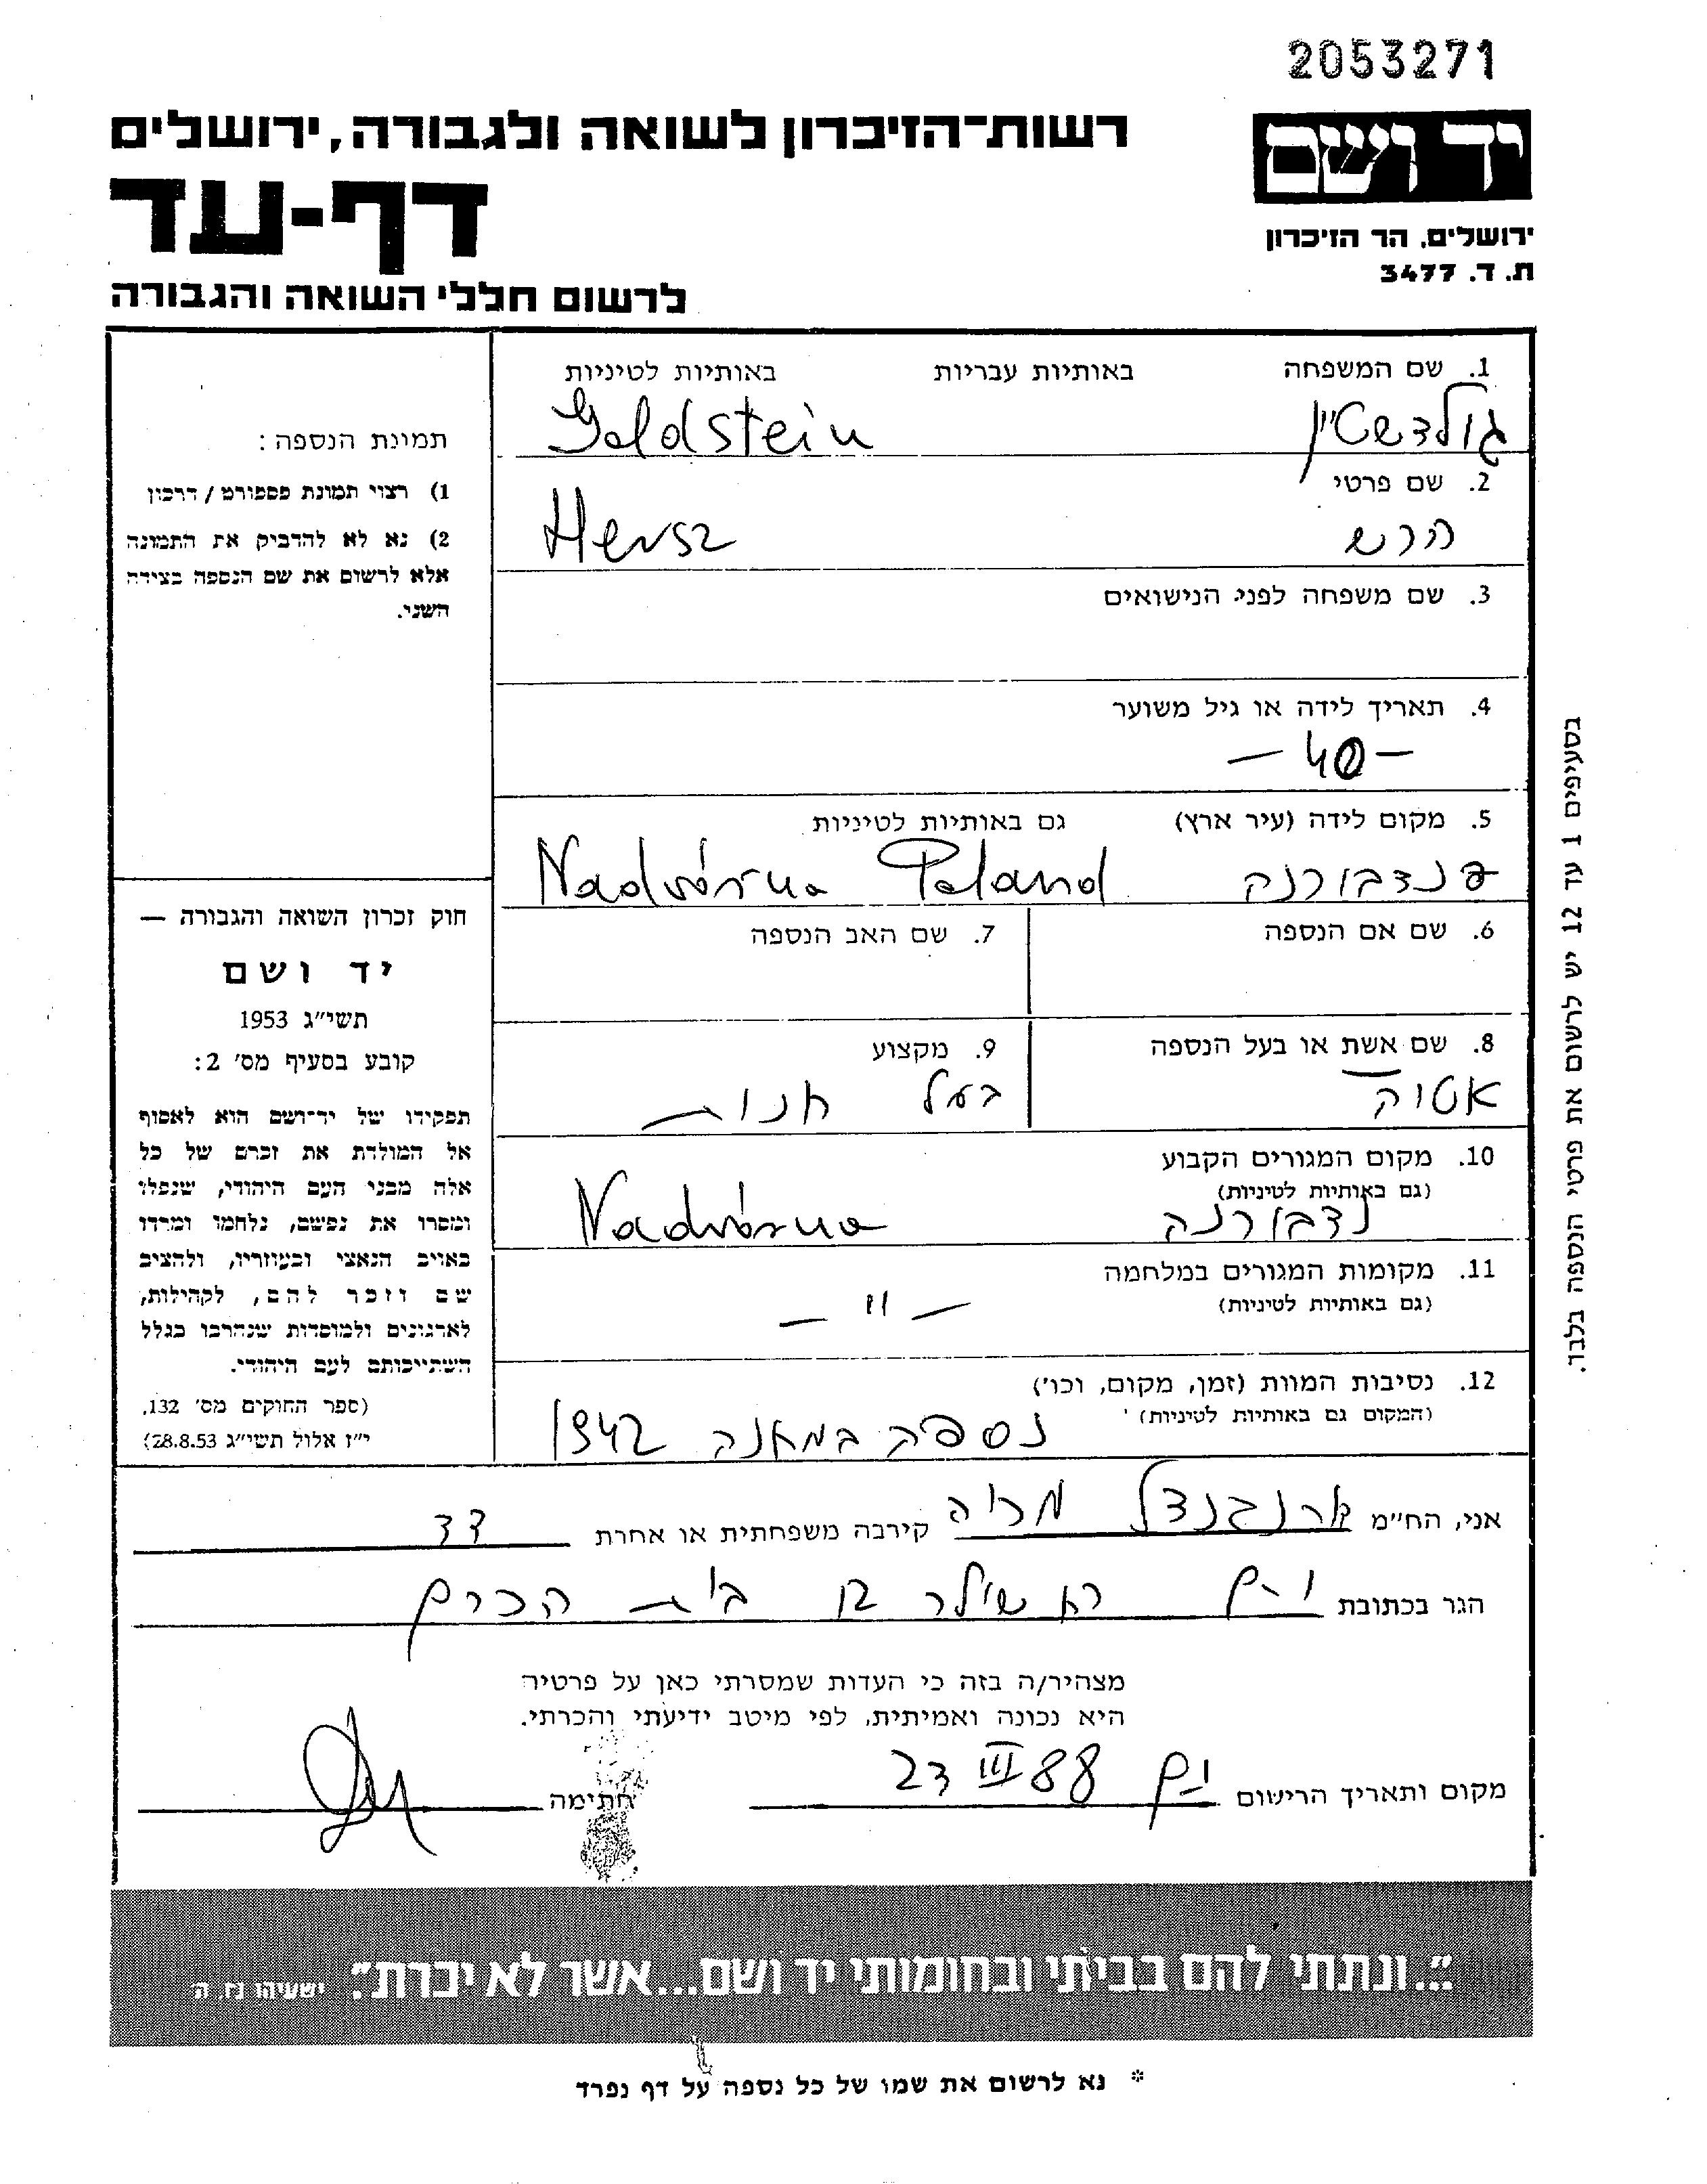 2053271
רשות-הזיכרון לשואה ולגבורה, ירושלים
יד ושם
דף-עד
ירושלים, הר הזיכרון
ת. ד. 3477
לרשום חללי השואה והגבורה
1. שם המשפחה באותיות עבריות באותיות לטיניות
גולדשטיין Goldstein
2. שם פרטי
הרש Hersz
3. שם משפחה לפני הנישואים
4. תאריך לידה או גיל משוער
– 40 –
5. מקום לידה (עיר ארץ) גם באותיות לטיניות
נדבורנה Nadwórna Poland
6. שם אם הנספה 7. שם האב הנספה
8. שם אשת או בעל הנספה 9. מקצוע
אטה בעל חנות
10. מקום המגורים הקבוע
(גם באותיות לטיניות)
נדבורנה Nadwórna
11. מקומות המגורים במלחמה
(גם באותיות לטיניות)
– " –
12. נסיבות המוות (זמן, מקום, וכו')
(המקום גם באותיות לטיניות)
נספה במחנה 1942
תמונת הנספה:
1) רצוי תמונת פספורט / דרכון
2) נא לא להדביק את התמונה
אלא לרשום את שם הנספה בצידה
השני.
חוק זכרון השואה והגבורה —
יד ושם
תשי"ג 1953
קובע בסעיף מס' 2:
תפקידו של יד-ושם הוא לאסוף
אל המולדת את זכרם של כל
אלה מבני העם היהודי, שנפלו
ומסרו את נפשם, נלחמו ומרדו
באויב הנאצי ובעוזריו, ולהציב
שם וזכר להם, לקהילות,
לארגונים ולמוסדות שנהרבו בגלל
השתייכותם לעם היהודי.
(ספר החוקים מס' 132,
י"ז אלול תשי"ג 28.8.53)
בסעיפים 1 עד 12 יש לרשום את פרטי הנספה בלבד.
אני, הח"מ קירבה משפחתית או אחרת דד
הגר בכתובת י-ם בית הכרם
מצהיר/ה בזה כי העדות שמסרתי כאן על פרטיה
היא נכונה ואמיתית, לפי מיטב ידיעתי והכרתי.
מקום ותאריך הרישום י-ם 23 III 88 חתימה
"...ונתתי להם בביתי ובחומותי יד ושם...אשר לא יכרת". ישעיהו נו, ה
* נא לרשום את שמו של כל נספה על דף נפרד